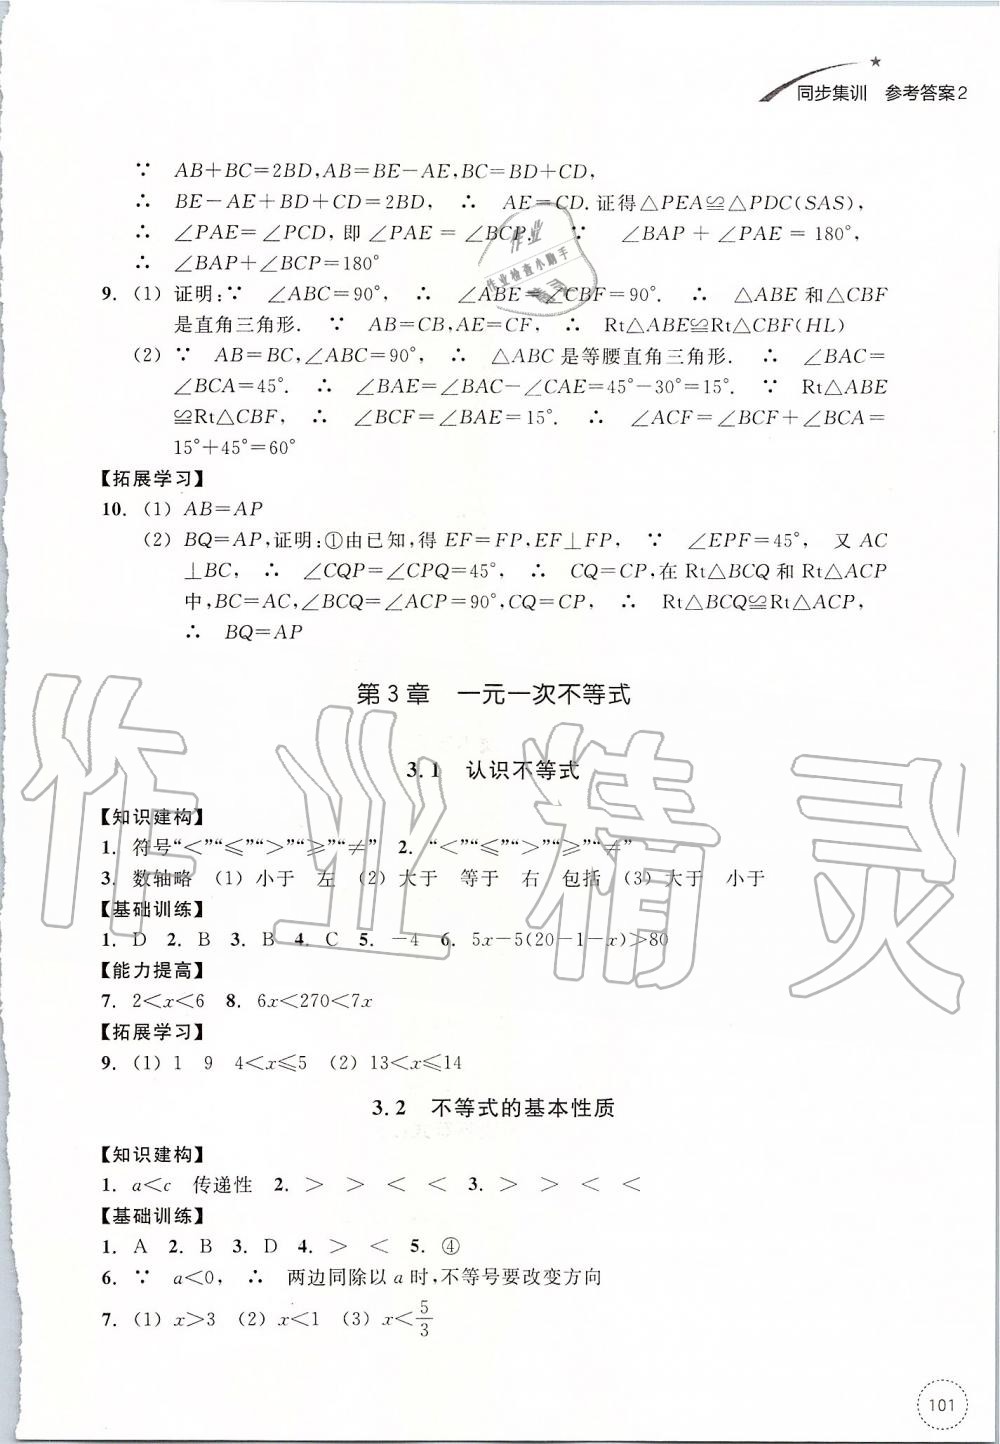 同步集训 参考答案2
∵ AB+BC=2BD,AB=BE-AE,BC=BD+CD,
∴ BE-AE+BD+CD=2BD, ∴ AE=CD.证得△PEA≌△PDC(SAS),
∴ ∠PAE=∠PCD,即∠PAE=∠BCP. ∵ ∠BAP+∠PAE=180°,
∴ ∠BAP+∠BCP=180°
9. (1) 证明:∵ ∠ABC=90°, ∴ ∠ABE=∠CBF=90°. ∴ △ABE和△CBF
是直角三角形. ∵ AB=CB,AE=CF, ∴ Rt△ABE≌Rt△CBF(HL)
(2) ∵ AB=BC,∠ABC=90°, ∴ △ABC是等腰直角三角形. ∴ ∠BAC=
∠BCA=45°. ∴ ∠BAE=∠BAC-∠CAE=45°-30°=15°. ∵ Rt△ABE
≌Rt△CBF, ∴ ∠BCF=∠BAE=15°. ∴ ∠ACF=∠BCF+∠BCA=
15°+45°=60°
【拓展学习】
10. (1) AB=AP
(2) BQ=AP,证明:①由已知,得EF=FP,EF⊥FP, ∵ ∠EPF=45°, 又AC
⊥BC, ∴ ∠CQP=∠CPQ=45°, ∴ CQ=CP,在Rt△BCQ和Rt△ACP
中,BC=AC,∠BCQ=∠ACP=90°,CQ=CP, ∴ Rt△BCQ≌Rt△ACP,
∴ BQ=AP
第3章 一元一次不等式
3.1 认识不等式
【知识建构】
1. 符号“<”“≤”“>”“≥”“≠” 2. “<”“≤”“>”“≥”“≠”
3. 数轴略 (1) 小于 左 (2) 大于 等于 右 包括 (3) 大于 小于
【基础训练】
1. D 2. B 3. B 4. C 5. -4 6. 5x-5(20-1-x)>80
【能力提高】
7. 2<x<6 8. 6x<270<7x
【拓展学习】
9. (1) 1 9 4<x≤5 (2) 13<x≤14
3.2 不等式的基本性质
【知识建构】
1. a<c 传递性 2. > > < < 3. > > < <
【基础训练】
1. A 2. B 3. D 4. > < 5. ④
6. ∵ a<0, ∴ 两边同除以a时,不等号要改变方向
7. (1) x>3 (2) x<1 (3) x<5/3
101
作业
作业检查小助手
作业精灵